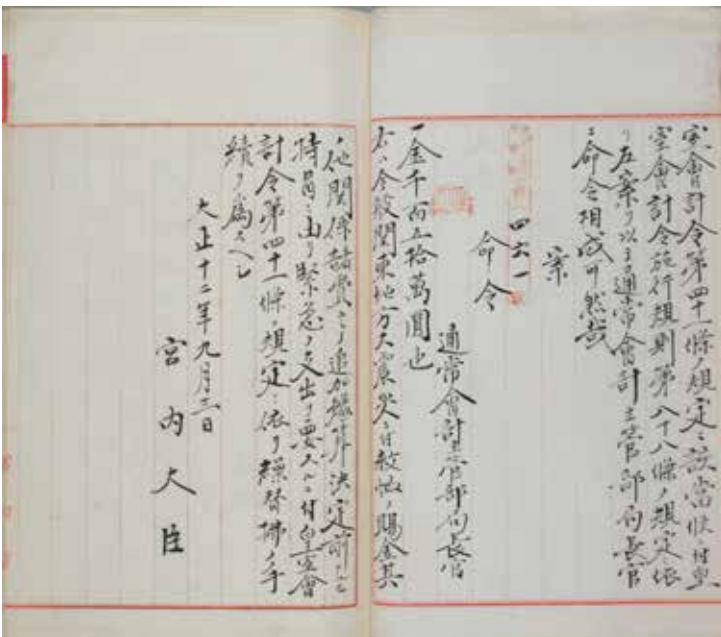 室會計令第四十一條ノ規定ニ該當候付皇
室會計令施行規則第八十八條ノ規定ニ依
リ左案ヲ以テ通常會計主管部局長官
ニ命令相成可然哉
案
四六一
命令
通常會計主管部局長官
一金千百五拾萬圓也
右ハ今般関東地方大震災ニ付救恤ノ賜金其
他関係諸費ニシテ追加豫算決定前ニ
特旨ニ由リ緊急ノ支出ヲ要スルニ付皇室會
計令第四十一條ノ規定ニ依リ繰替拂ノ手
續ヲ為スヘシ
大正十二年九月三日
宮内大臣